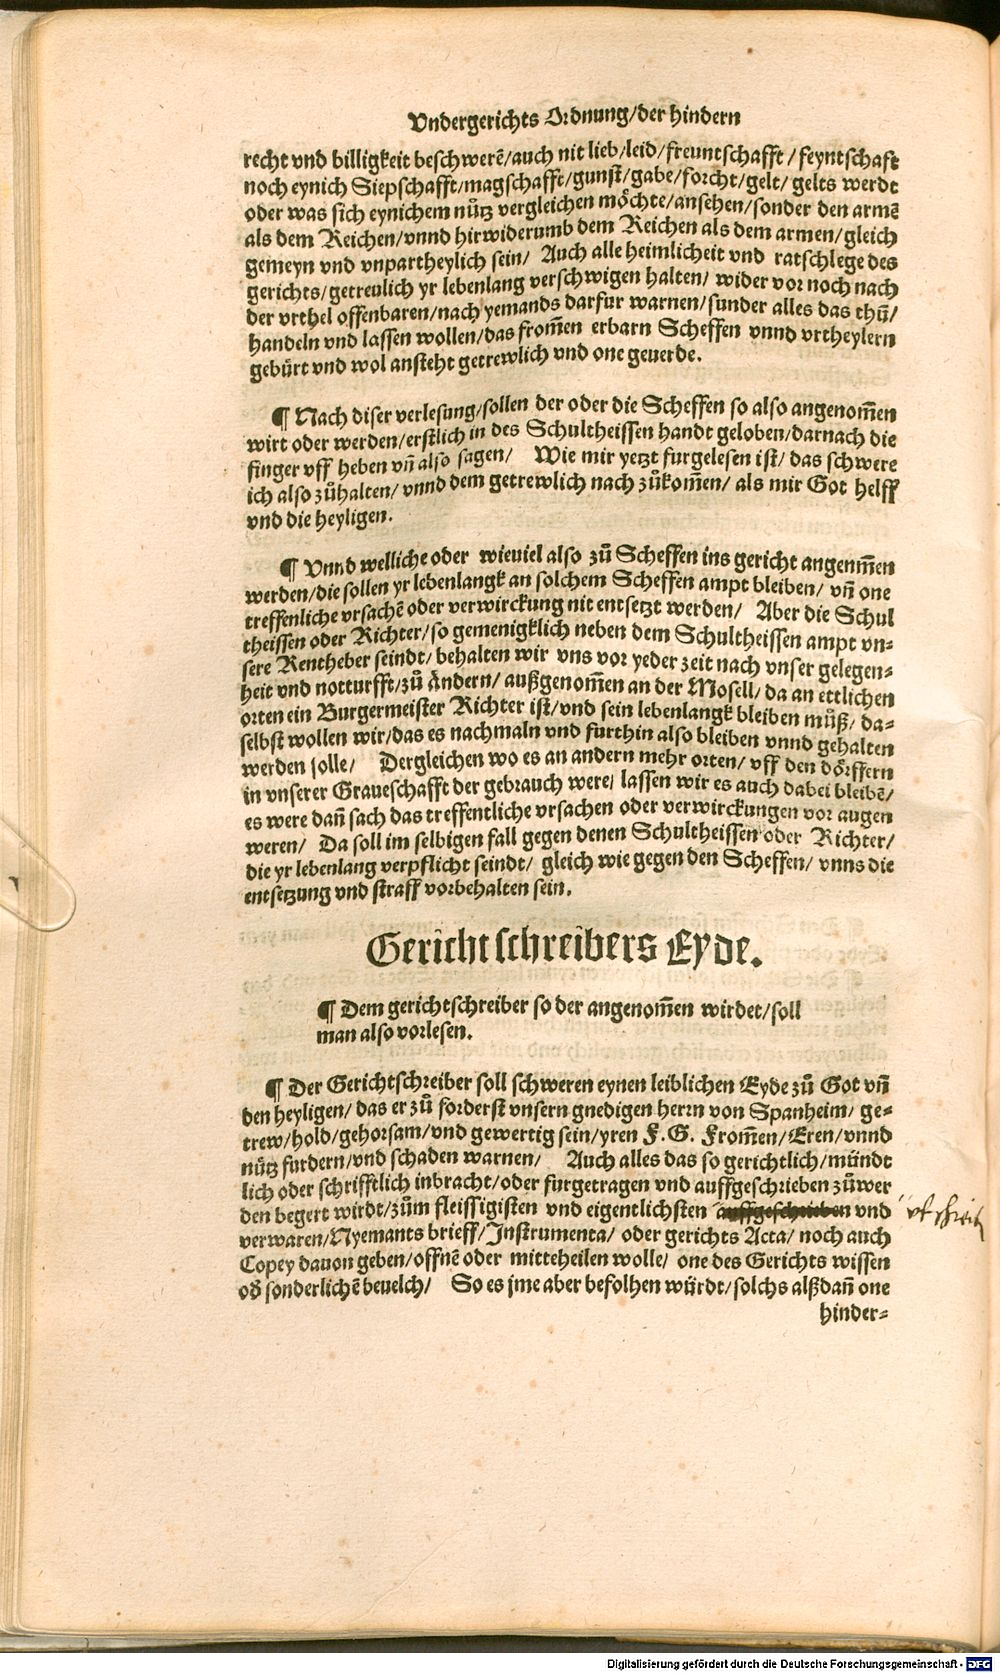 Vndergerichts Ordnung/der hindern
recht vnd billigkeit beschwerē/auch nit lieb/leid/freuntschafft/feyntschaft
noch eynich Siepschafft/magschafft/gunst/gabe/forcht/gelt/gelts werdt
oder was sich eynichem nůtz vergleichen möchte/ansehen/sonder den armē
als dem Reichen/vnnd hirwiderumb dem Reichen als dem armen/gleich
gemeyn vnd vnpartheylich sein/ Auch alle heimlicheit vnd ratschlege des
gerichts/getreulich yr lebenlang verschwigen halten/wider vor noch nach
der vrthel offenbaren/nach yemands darfur warnen/sunder alles das thů/
handeln vnd lassen wollen/das from̄en erbarn Scheffen vnnd vrtheylern
gebürt vnd wol ansteht getrewlich vnd one geuerde.
¶ Nach diser verlesung/sollen der oder die Scheffen so also angenom̄en
wirt oder werden/erstlich in des Schultheissen handt geloben/darnach die
finger vff heben vn̄ also sagen/ Wie mir yetzt furgelesen ist/das schwere
ich also zůhalten/vnnd dem getrewlich nach zůkom̄en/als mir Got helff
vnd die heyligen.
¶ Vnnd welliche oder wieuiel also zů Scheffen ins gericht angenm̄en
werden/die sollen yr lebenlangk an solchem Scheffen ampt bleiben/vn̄ one
treffenliche vrsachē oder verwirckung nit entsetzt werden/ Aber die Schul
theissen oder Richter/so gemenigklich neben dem Schultheissen ampt vn-
sere Rentheber seindt/behalten wir vns vor yeder zeit nach vnser gelegen-
heit vnd notturfft/zů ändern/außgenom̄en an der Mosell/da an ettlichen
orten ein Burgermeister Richter ist/vnd sein lebenlangk bleiben můß/da-
selbst wollen wir/das es nachmaln vnd furthin also bleiben vnnd gehalten
werden solle/ Dergleichen wo es an andern mehr orten/vff den dörffern
in vnserer Graueschafft der gebrauch were/lassen wir es auch dabei bleibē/
es were dan̄ sach das treffentliche vrsachen oder verwirckungen vor augen
weren/ Da soll im selbigen fall gegen denen Schultheissen oder Richter/
die yr lebenlang verpflicht seindt/gleich wie gegen den Scheffen/vnns die
entsetzung vnd straff vorbehalten sein.
Gerichtschreibers Eyde.
¶ Dem gerichtschreiber so der angenom̄en wirdet/soll
man also vorlesen.
¶ Der Gerichtschreiber soll schweren eynen leiblichen Eyde zů Got vn̄
den heyligen/das er zů forderst vnsern gnedigen herrn von Spanheim/ge-
trew/hold/gehorsam/vnd gewertig sein/yren F.G. From̄en/Eren/vnnd
nůtz furdern/vnd schaden warnen/ Auch alles das so gerichtlich/můndt
lich oder schrifftlich inbracht/oder furgetragen vnd auffgeschrieben zůwer
den begert wirdt/zům fleissigisten vnd eigentlichsten auffgeschrieben vnd
verwaren/Nyemants brieff/Instrumenta/oder gerichts Acta/noch auch
Copey dauon geben/offnē oder mitteheilen wolle/one des Gerichts wissen
oð sonderlichē beuelch/ So es jme aber befolhen würdt/solchs alßdan̄ one
hinder-
Digitalisierung gefördert durch die Deutsche Forschungsgemeinschaft - DFG